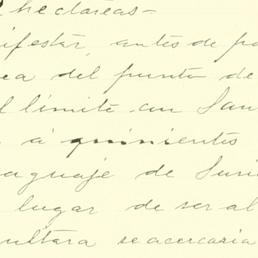 hectáreas-
nifestar, antes de pa
ea del punto de
l límite con San
á quinientos
aguaje de Suri
lugar de ser al
ultara se acercaria